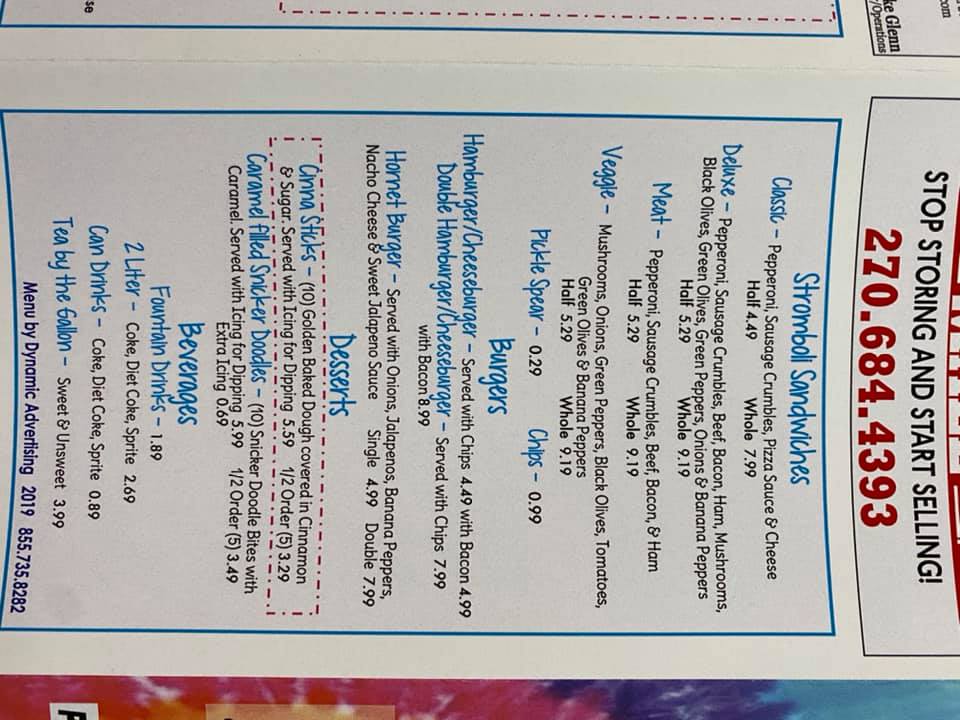 STOP STORING AND START SELLING!
270.684.4393
.com
ke Glenn
/Operations
se
Stromboli Sandwiches
Classic - Pepperoni, Sausage Crumbles, Pizza Sauce & Cheese
Half 4.49 Whole 7.99
Deluxe - Pepperoni, Sausage Crumbles, Beef, Bacon, Ham, Mushrooms,
Black Olives, Green Olives, Green Peppers, Onions & Banana Peppers
Half 5.29 Whole 9.19
Meat - Pepperoni, Sausage Crumbles, Beef, Bacon, & Ham
Half 5.29 Whole 9.19
Veggie - Mushrooms, Onions, Green Peppers, Black Olives, Tomatoes,
Green Olives & Banana Peppers
Half 5.29 Whole 9.19
Pickle Spear - 0.29 Chips - 0.99
Burgers
Hamburger/Cheeseburger - Served with Chips 4.49 with Bacon 4.99
Double Hamburger/Cheeseburger - Served with Chips 7.99
with Bacon 8.99
Hornet Burger - Served with Onions, Jalapenos, Banana Peppers,
Nacho Cheese & Sweet Jalapeno Sauce Single 4.99 Double 7.99
Desserts
Cinna Sticks - (10) Golden Baked Dough covered in Cinnamon
& Sugar. Served with Icing for Dipping 5.59 1/2 Order (5) 3.29
Caramel Filled Snicker Doodles - (10) Snicker Doodle Bites with
Caramel. Served with Icing for Dipping 5.99 1/2 Order (5) 3.49
Extra Icing 0.69
Beverages
Fountain Drinks - 1.89
2 Liter - Coke, Diet Coke, Sprite 2.69
Can Drinks - Coke, Diet Coke, Sprite 0.89
Tea by the Gallon - Sweet & Unsweet 3.99
Menu by Dynamic Advertising 2019 855.735.8282